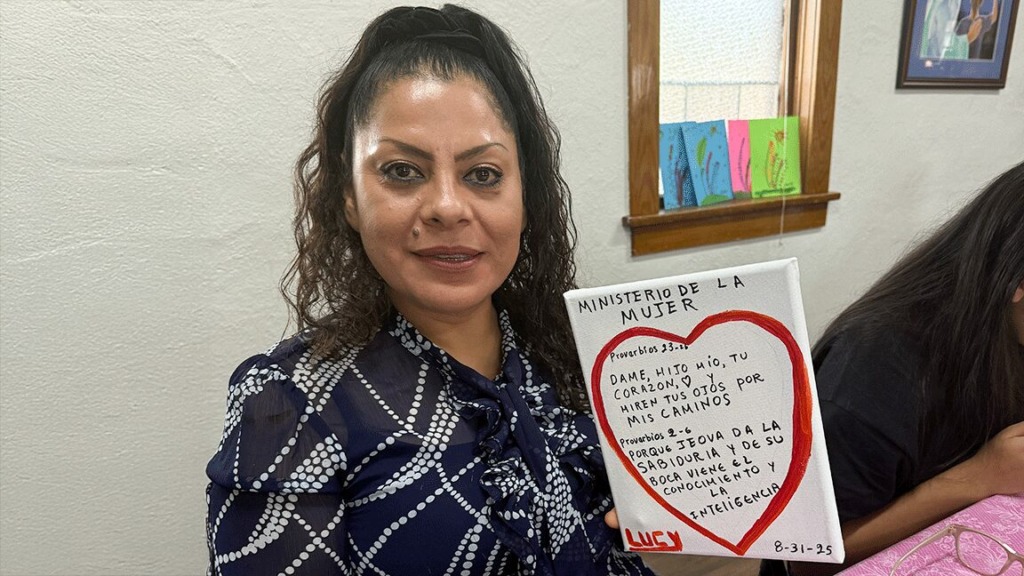 MINISTERIO DE LA
MUJER
Proverbios 23-26
DAME, HIJO MÍO, TU
CORAZON, ♡ Y
MIREN TUS OJOS POR
MIS CAMINOS
Proverbios 2-6
PORQUE JEOVA DA LA
SABIDURIA Y DE SU
BOCA VIENE EL
CONOCIMIENTO Y
LA
INTELIGENCIA
LUCY
8-31-25